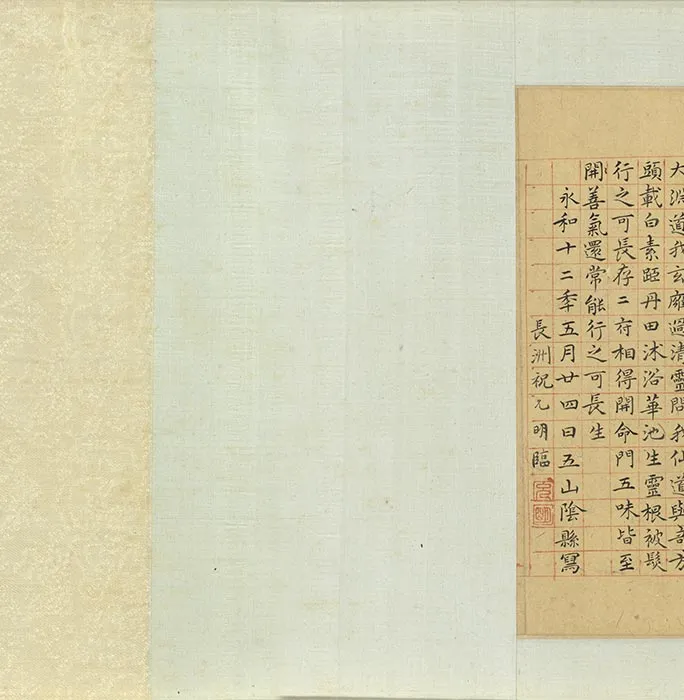 大淵道我玄廱過清靈問我仙道與奇方
頭載白素距丹田沐浴華池生靈根被髮
行之可長存二府相得開命門五味皆至
開善氣還常能行之可長生
永和十二季五月廿四日五山陰縣寫
長洲祝允明臨